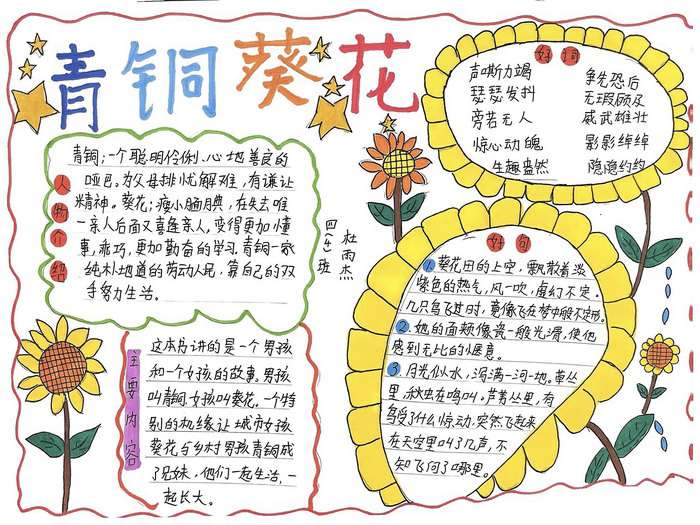 青铜葵花
人物介绍
青铜：一个聪明伶俐、心地善良的
哑巴。为父母排忧解难，有谦让
精神。葵花：瘦小腼腆，在失去唯
一亲人后面又喜逢亲人，变得更加懂
事，乖巧，更加勤奋的学习。青铜一家
纯朴地道的劳动人民，靠自己的双
手努力生活。
四(4)班
杜雨杰
好词
声嘶力竭 争先恐后
瑟瑟发抖 无瑕顾及
旁若无人 威武雄壮
惊心动魄 影影绰绰
生趣盎然 隐隐约约
主要内容
这本书讲的是一个男孩
和一个女孩的故事。男孩
叫青铜，女孩叫葵花。一个特
别的机缘让城市女孩
葵花与乡村男孩青铜成
了兄妹，他们一起生活，一
起长大。
好句
1. 葵花田的上空，飘散着淡
紫色的热气，风一吹，虚幻不定。
几只鸟飞过时，竟像飞在梦中般不定形。
2. 她的面颊像瓷一般光滑，使他
感到无比的惬意。
3 月光似水，泻满一河一地。草丛
里，秋虫在鸣叫。芦苇丛里，有
鸟受了什么惊动，突然飞起来
在天空里叫了几声，不
知飞向了哪里。